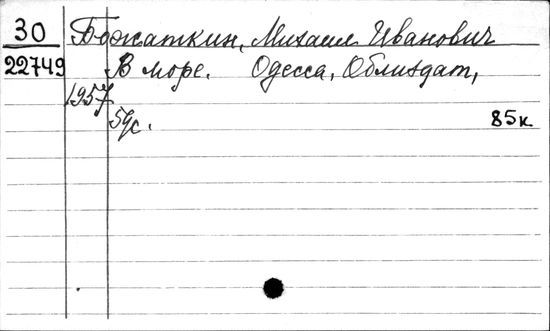 30 Божаткин, Михаил Иванович
22749 В море. Одесса, Облиздат,
1957
59с. 85к